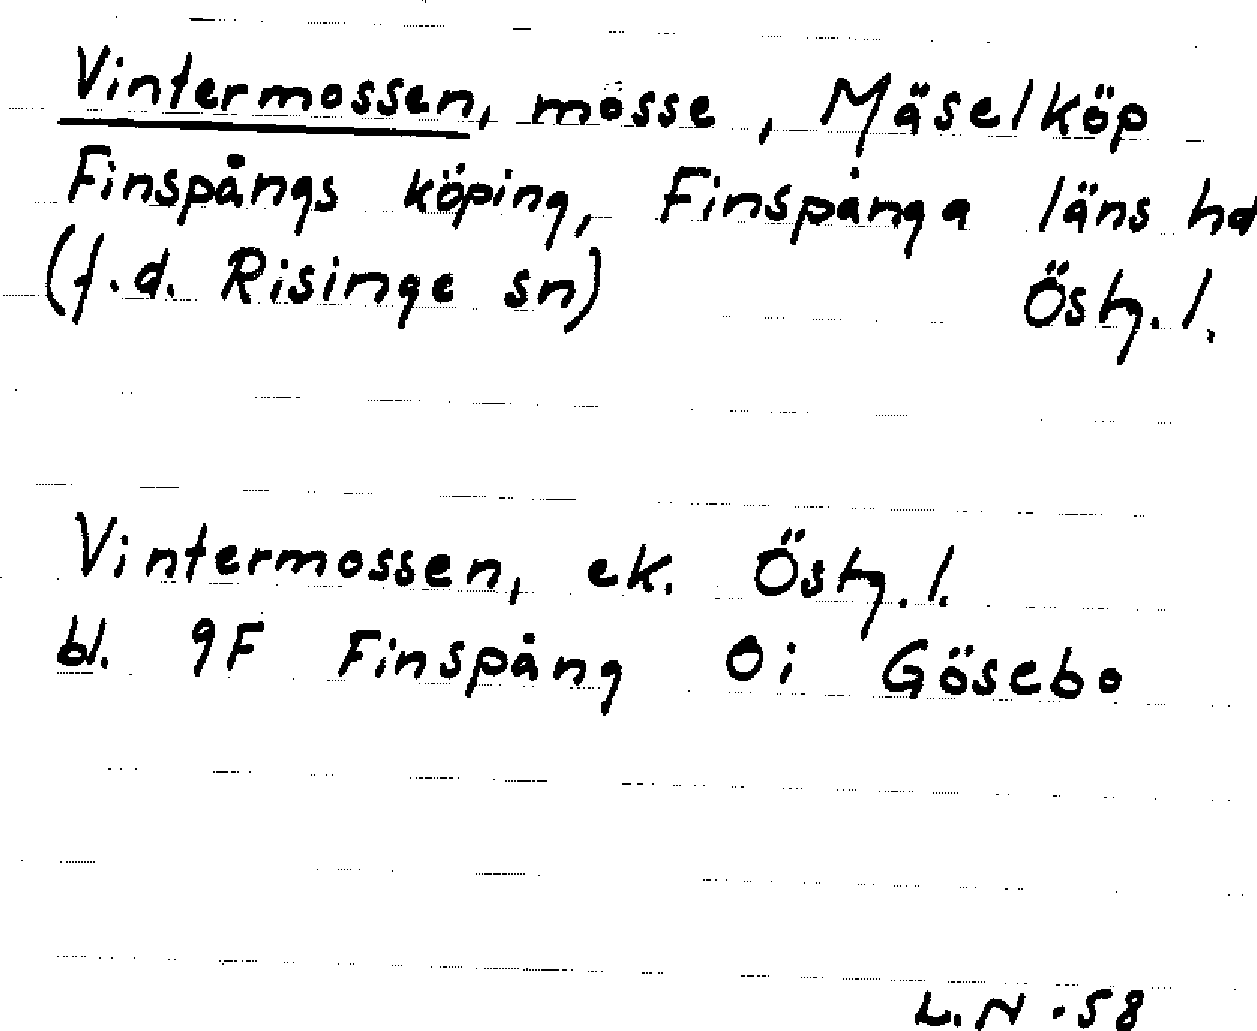 Vintermossen, mosse, Mäselköp
Finspångs köping, Finspånga läns hd
(f.d. Risinge sn) Östg. l.
Vintermossen, ek. Östg. l.
bl. 9F Finspång 0i Gösebo
L.N -58